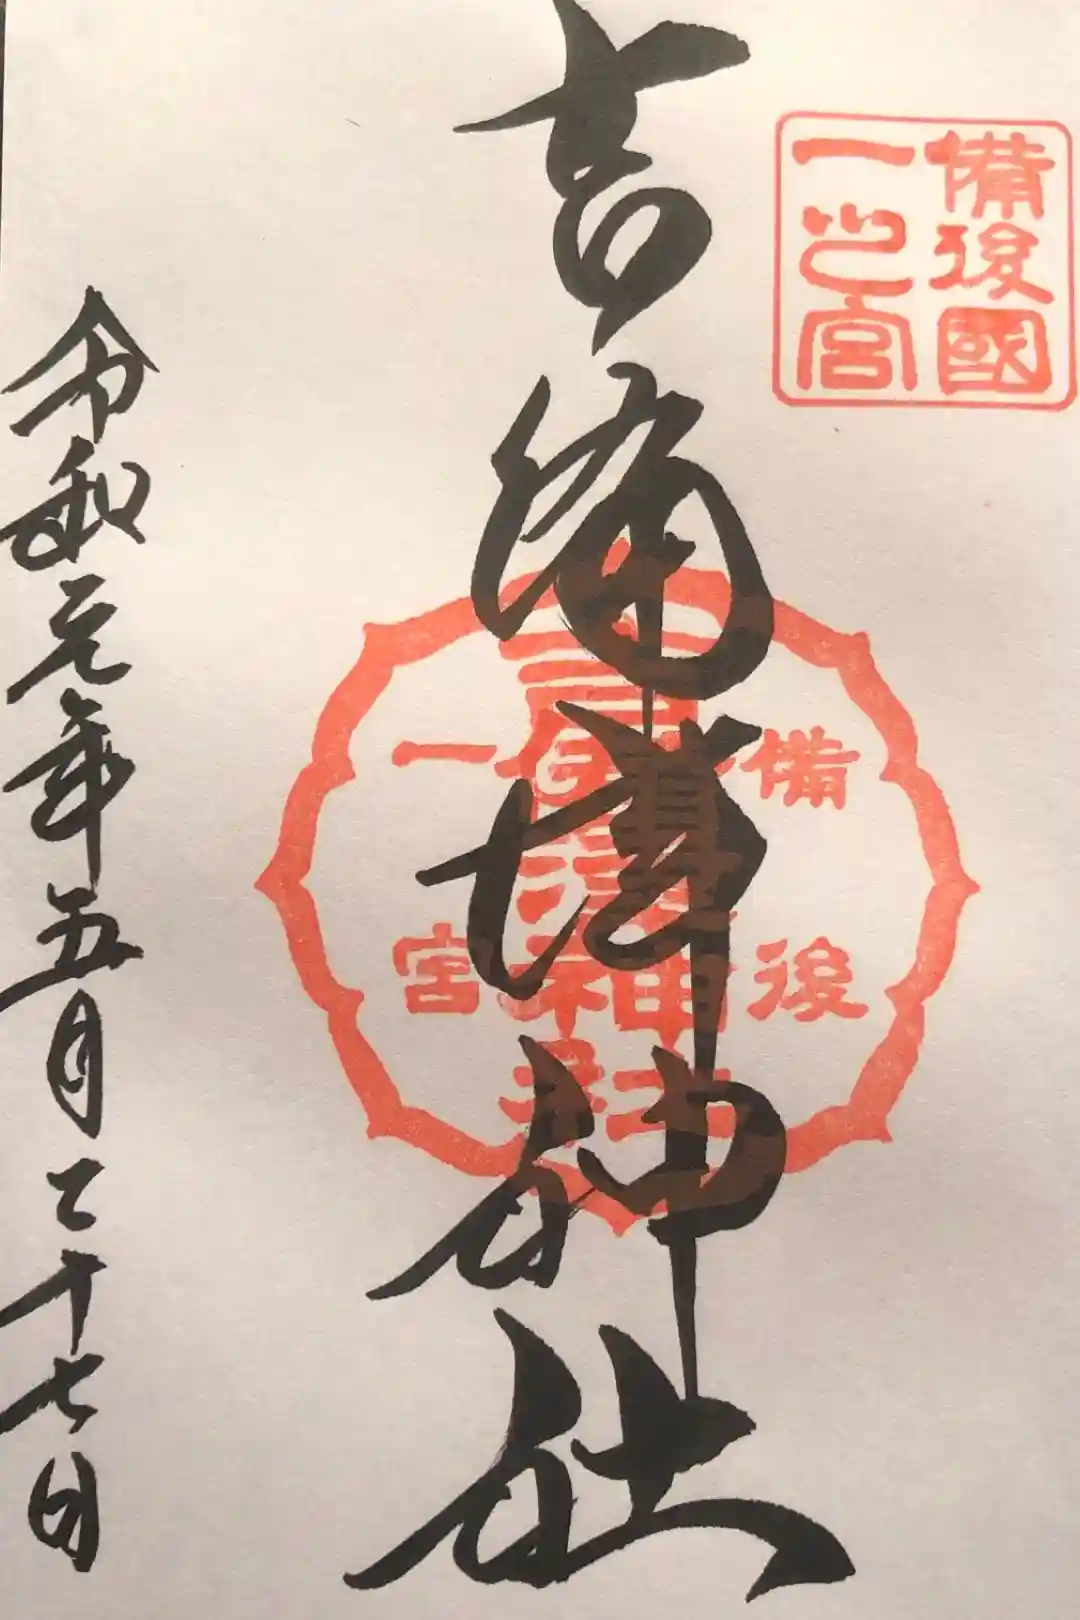 備後國
一之宮
吉備津神社
備後
一宮
吉備津神社
令和元年五月二十七日